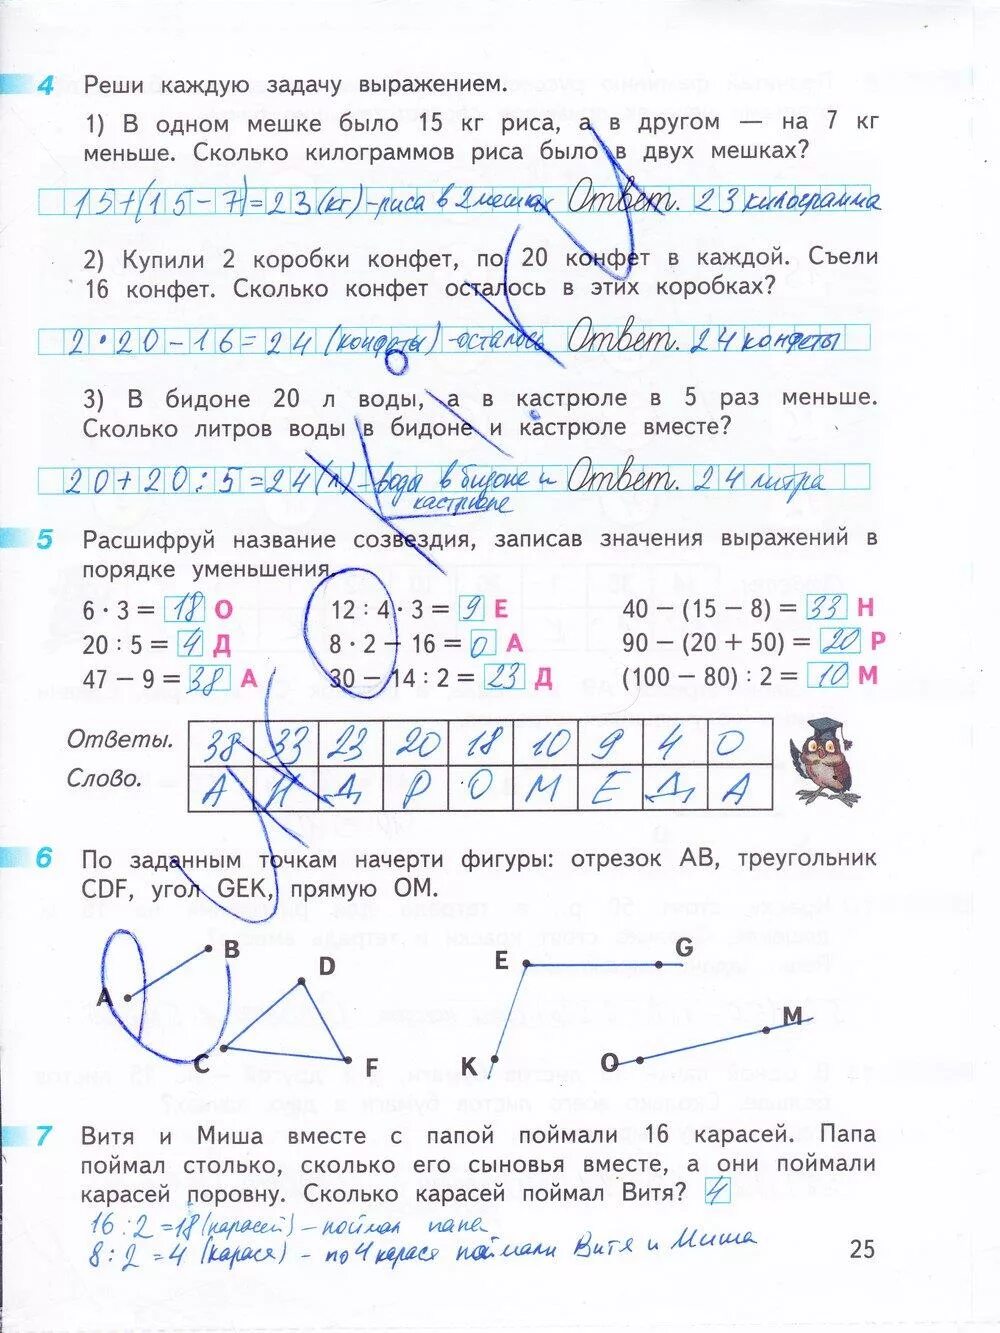 4 Реши каждую задачу выражением.
1) В одном мешке было 15 кг риса, а в другом — на 7 кг
меньше. Сколько килограммов риса было в двух мешках?
15+(15-7)=23(кг)-риса в 2 мешках Ответ. 23 килограмма
2) Купили 2 коробки конфет, по 20 конфет в каждой. Съели
16 конфет. Сколько конфет осталось в этих коробках?
2·20-16=24 (конфеты)-осталось Ответ. 24 конфеты
3) В бидоне 20 л воды, а в кастрюле в 5 раз меньше.
Сколько литров воды в бидоне и кастрюле вместе?
20+20:5=24(л)-воды в бидоне и Ответ. 24 литра
кастрюле
5 Расшифруй название созвездия, записав значения выражений в
порядке уменьшения.
6 · 3 = 18 О 12 : 4 · 3 = 9 Е 40 − (15 − 8) = 33 Н
20 : 5 = 4 Д 8 · 2 − 16 = 0 А 90 − (20 + 50) = 20 Р
47 − 9 = 38 А 30 − 14 : 2 = 23 Д (100 − 80) : 2 = 10 М
Ответы. 38 33 23 20 18 10 9 4 0
Слово. А Н Д Р О М Е Д А
6 По заданным точкам начерти фигуры: отрезок AB, треугольник
CDF, угол GEK, прямую OM.
A B C D F E G K O M
7 Витя и Миша вместе с папой поймали 16 карасей. Папа
поймал столько, сколько его сыновья вместе, а они поймали
карасей поровну. Сколько карасей поймал Витя? 4
16:2=8(карасей)-поймал папа
8:2=4 (карася) - по 4 карася поймали Витя и Миша
25